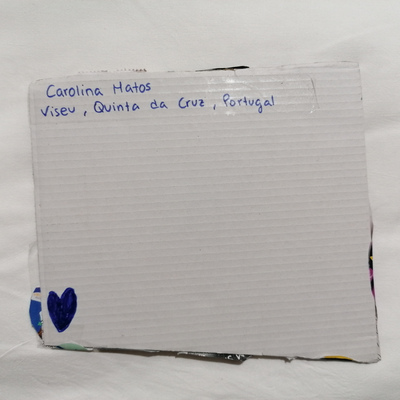 Carolina Matos
Viseu, Quinta da Cruz, Portugal